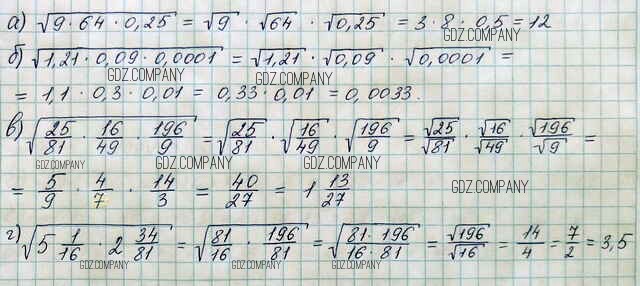 а) √(9 · 64 · 0,25) = √9 · √64 · √0,25 = 3 · 8 · 0,5 = 12
GDZ.COMPANY
б) √(1,21 · 0,09 · 0,0001) = √1,21 · √0,09 · √0,0001 =
GDZ.COMPANY GDZ.COMPANY
= 1,1 · 0,3 · 0,01 = 0,33 · 0,01 = 0,0033.
GDZ.COMPANY
в) √(25/81 · 16/49 · 196/9) = √(25/81) · √(16/49) · √(196/9) = √25/√81 · √16/√49 · √196/√9 =
GDZ.COMPANY GDZ.COMPANY GDZ.COMPANY
= 5/9 · 4/7 · 14/3 = 40/27 = 1 13/27
GDZ.COMPANY
г) √(5 1/16 · 2 34/81) = √(81/16 · 196/81) = √(81 · 196/16 · 81) = √196/√16 = 14/4 = 7/2 = 3,5
GDZ.COMPANY GDZ.COMPANY GDZ.COMPANY